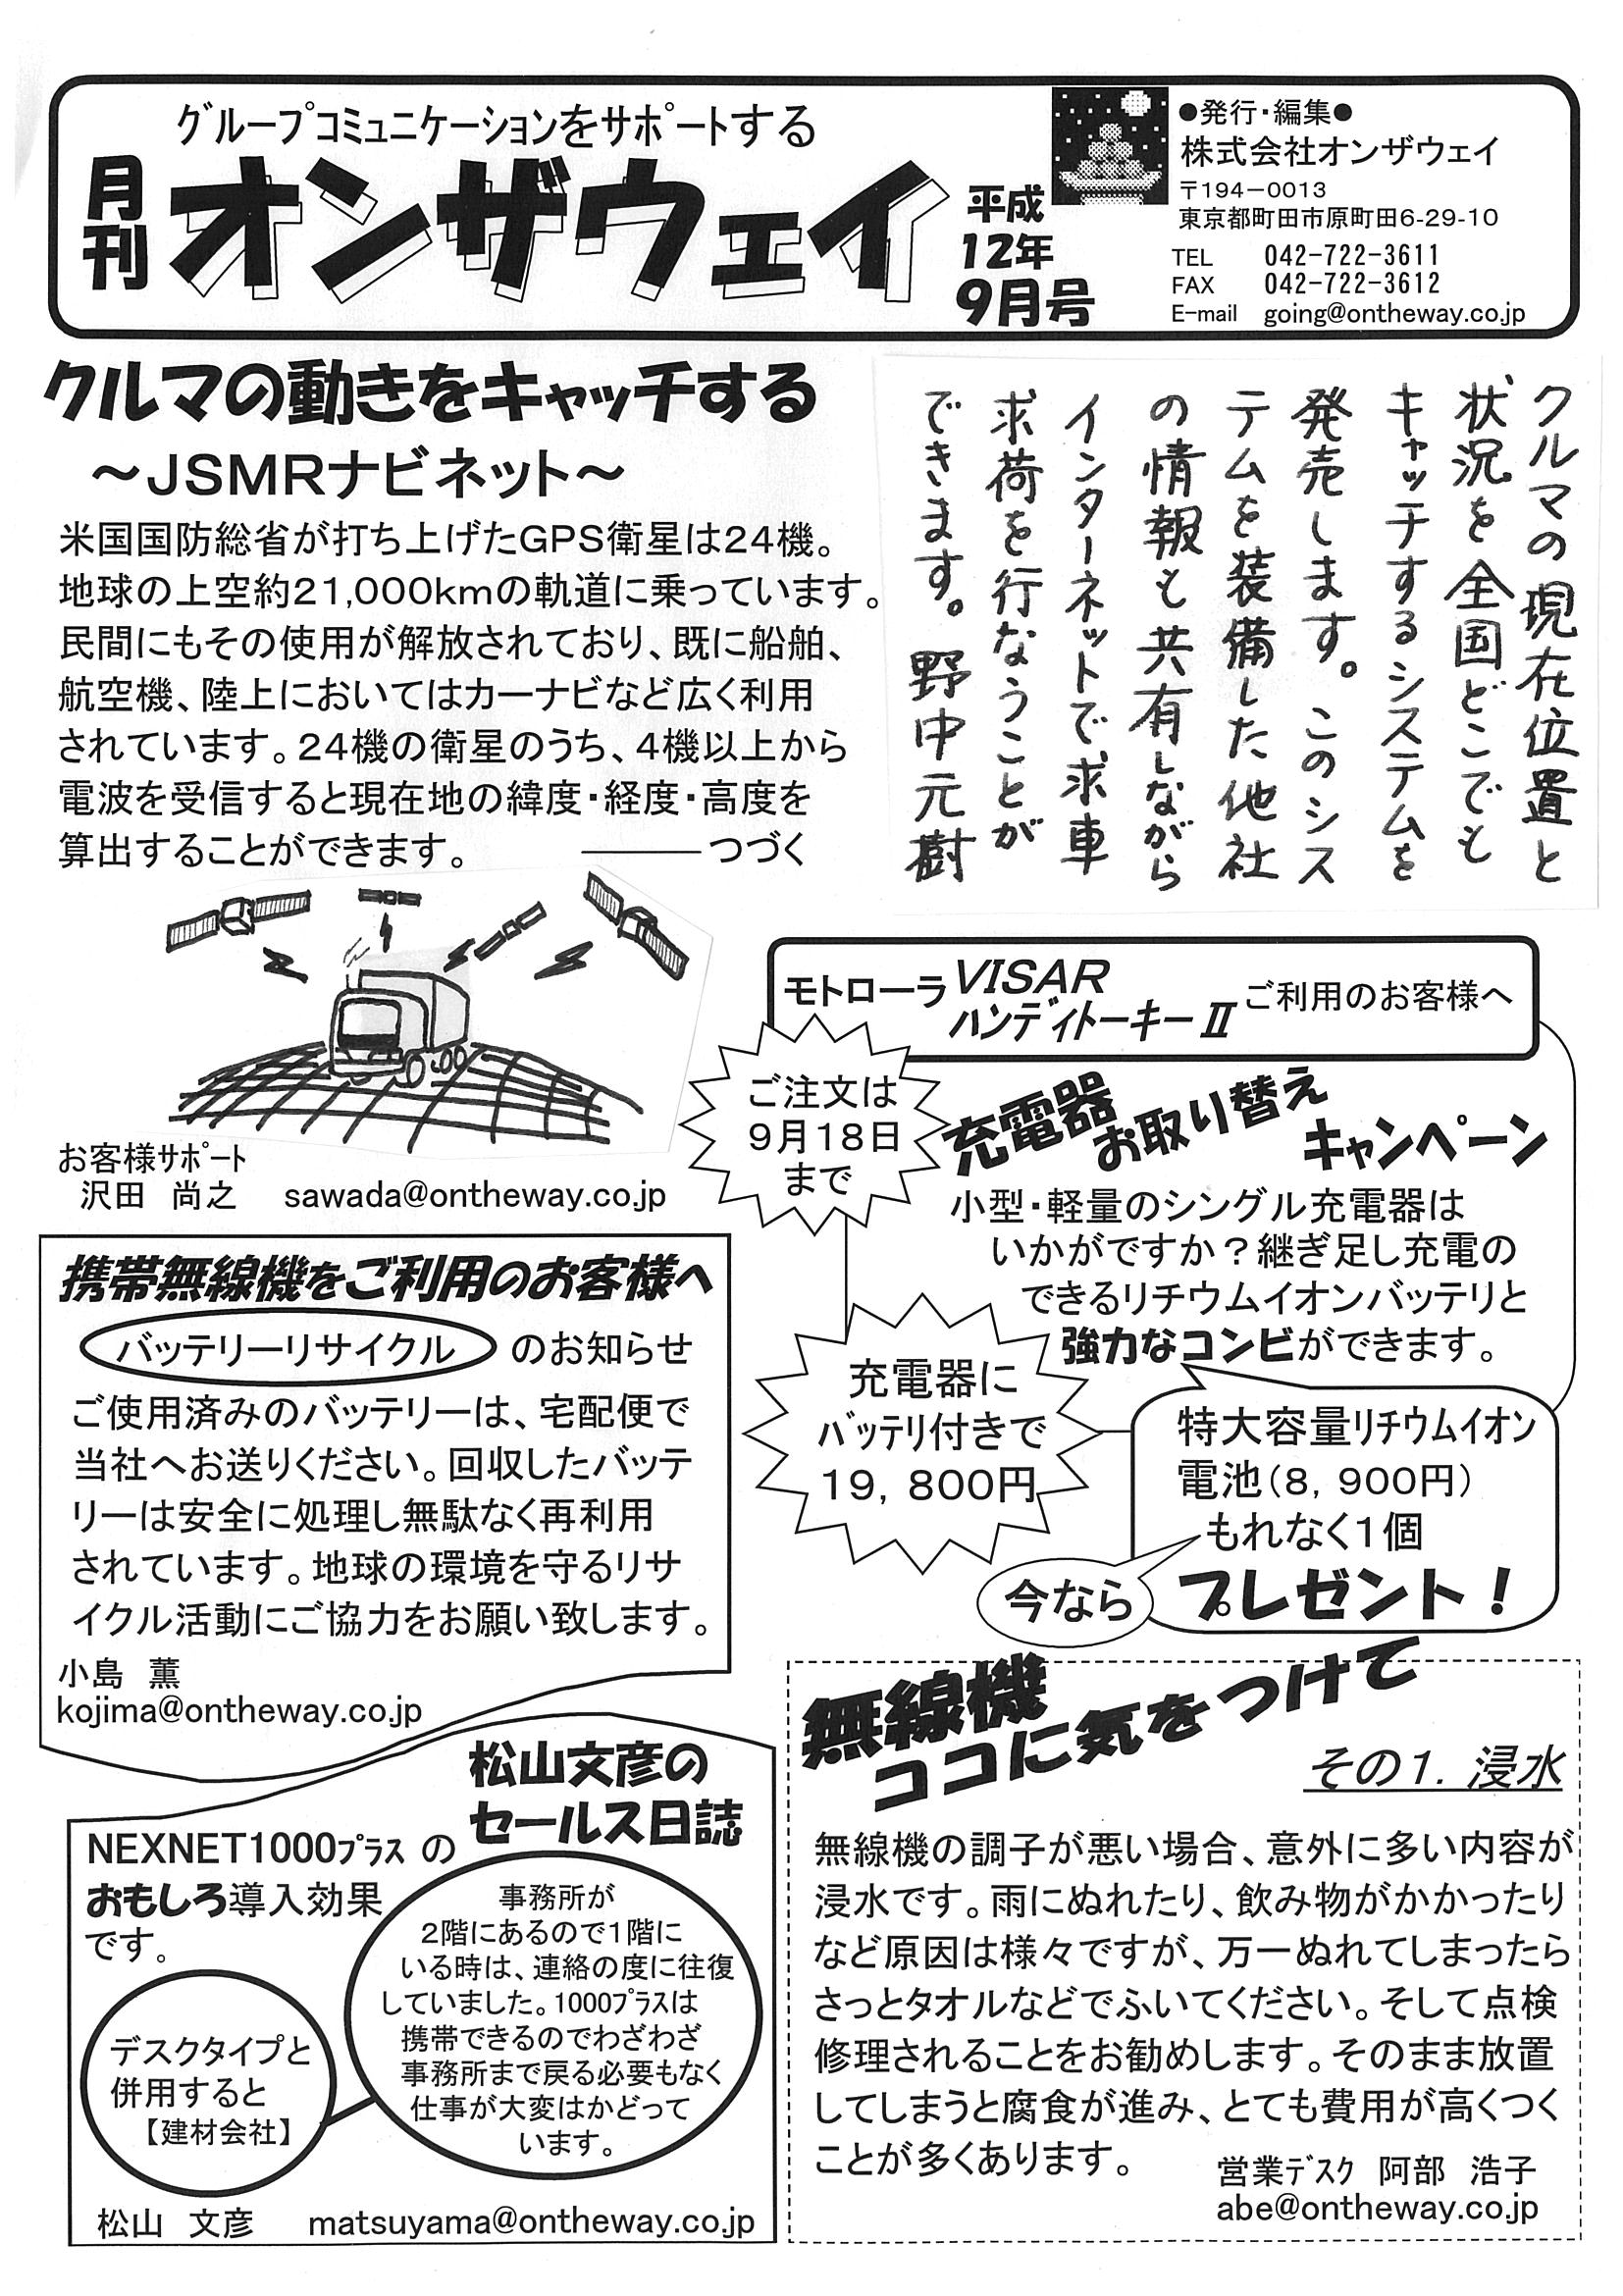 グループコミュニケーションをサポートする
月刊
オンザウェイ
平成
12年
9月号
●発行・編集●
株式会社オンザウェイ
〒194－0013
東京都町田市原町田6-29-10
TEL 042-722-3611
FAX 042-722-3612
E-mail going@ontheway.co.jp
クルマの動きをキャッチする
～JSMRナビネット～
米国国防総省が打ち上げたGPS衛星は24機。
地球の上空約21,000kmの軌道に乗っています。
民間にもその使用が解放されており、既に船舶、
航空機、陸上においてはカーナビなど広く利用
されています。24機の衛星のうち、4機以上から
電波を受信すると現在地の緯度・経度・高度を
算出することができます。 ―――つづく
お客様サポート
沢田 尚之 sawada@ontheway.co.jp
クルマの現在位置と
状況を全国どこでも
キャッチするシステムを
発売します。このシス
テムを装備した他社
の情報も共有しながら
インターネットで求車
求荷を行なうことが
できます。野中元樹
モトローラVISAR
ハンディトーキーⅡ ご利用のお客様へ
ご注文は
9月18日
まで
充電器
お取り替え
キャンペーン
小型・軽量のシングル充電器は
いかがですか？継ぎ足し充電の
できるリチウムイオンバッテリと
強力なコンビができます。
充電器に
バッテリ付きで
19，800円
特大容量リチウムイオン
電池（8，900円）
もれなく1個
プレゼント！
今なら
携帯無線機をご利用のお客様へ
バッテリーリサイクル のお知らせ
ご使用済みのバッテリーは、宅配便で
当社へお送りください。回収したバッテ
リーは安全に処理し無駄なく再利用
されています。地球の環境を守るリサ
イクル活動にご協力をお願い致します。
小島 薫
kojima@ontheway.co.jp
松山文彦の
セールス日誌
NEXNET1000プラス の
おもしろ導入効果
です。
デスクタイプと
併用すると
【建材会社】
事務所が
2階にあるので1階に
いる時は、連絡の度に往復
していました。1000プラスは
携帯できるのでわざわざ
事務所まで戻る必要もなく
仕事が大変はかどって
います。
松山 文彦 matsuyama@ontheway.co.jp
無線機
ココに気をつけて
その1. 浸水
無線機の調子が悪い場合、意外に多い内容が
浸水です。雨にぬれたり、飲み物がかかったり
など原因は様々ですが、万一ぬれてしまったら
さっとタオルなどでふいてください。そして点検
修理されることをお勧めします。そのまま放置
してしまうと腐食が進み、とても費用が高くつく
ことが多くあります。
営業デスク 阿部 浩子
abe@ontheway.co.jp